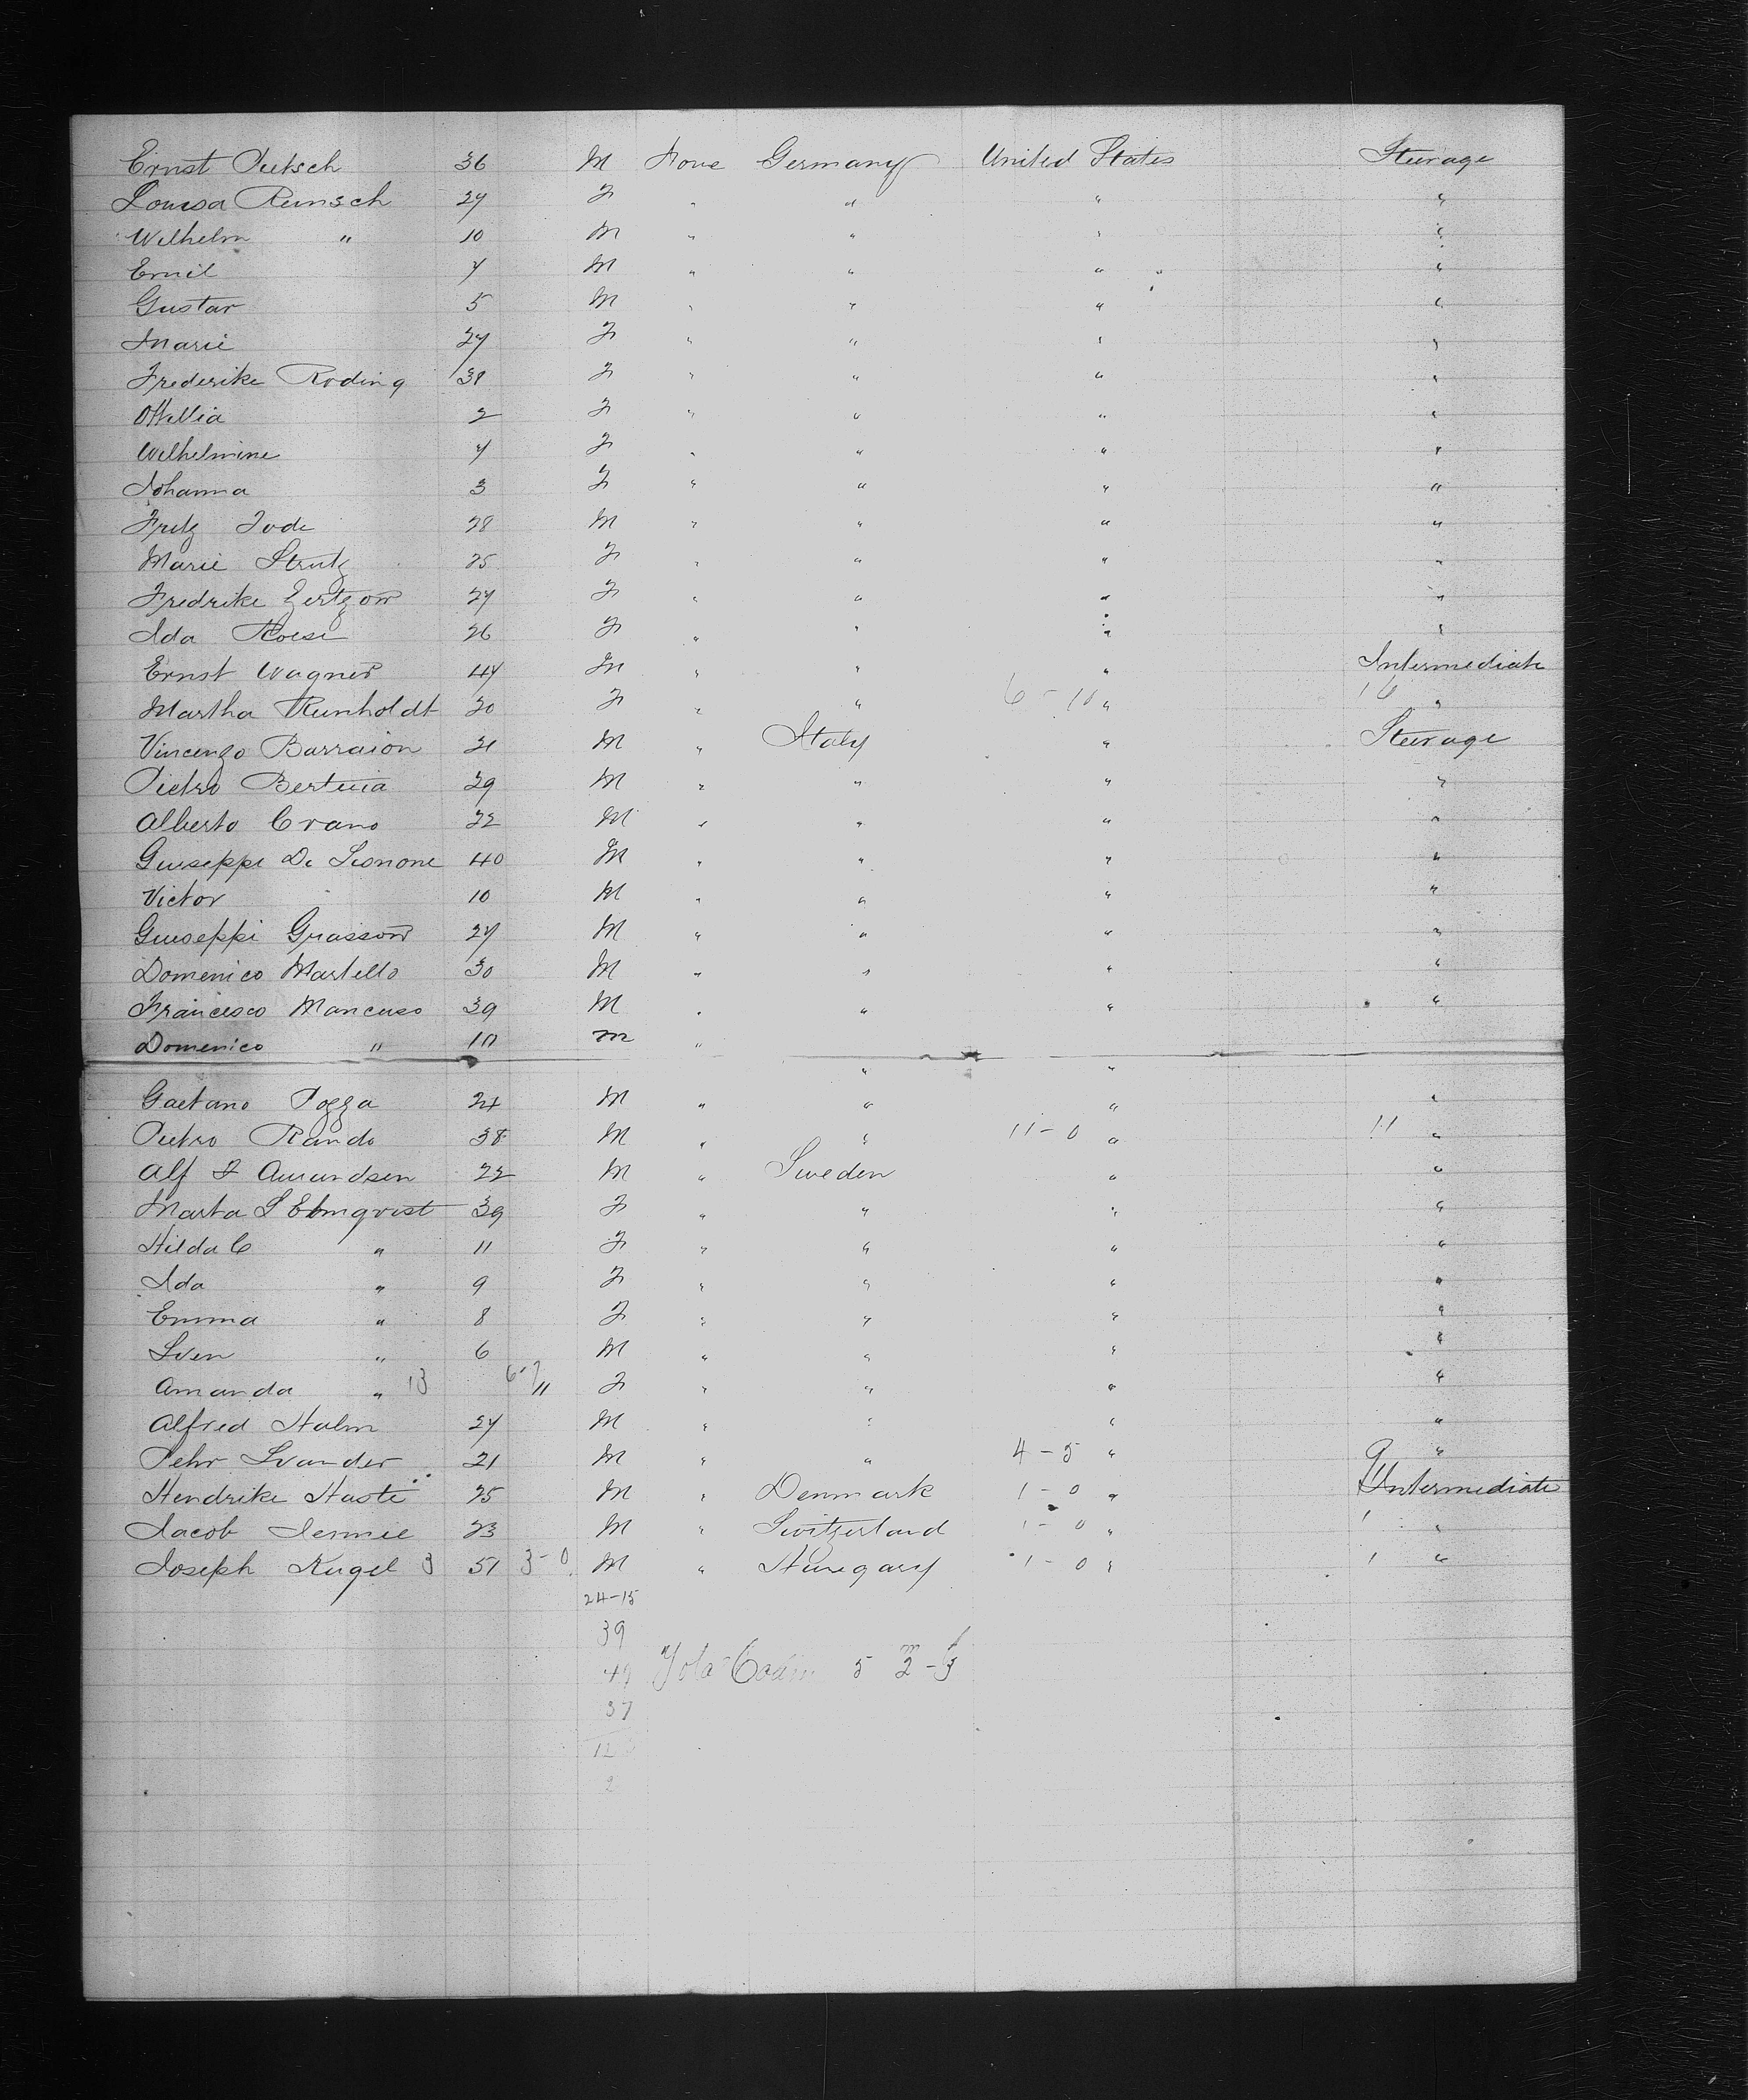 Ernst Putsch 36 M None Germany United States Steerage
Louisa Runsch 27 F " " " "
Wilhelm " 10 M " " " "
Emil 7 M " " " "
Gustav 5 M " " " "
Marie 27 F " " " "
Frederike Roding 38 F " " " "
Ottillia 2 F " " " "
Wilhelmine 4 F " " " "
Johanna 3 F " " " "
Fritz Jode 28 M " " " "
Marie Strutz 25 F " " " "
Fredrike Zertzow 27 F " " " "
Ida 26 F " " " "
Ernst Wagner 44 M " " " Intermediate
Martha Runholdt 20 F " " 6-10 " 16 "
Vincenzo Barraion 21 M " Italy " Steerage
Pietro Bertuia 29 M " " " "
Alberto Crano 22 M " " " "
Giuseppe De Leonone 40 M " " " "
Victor 10 M " " " "
Giuseppi Grasson 27 M " " " "
Domenico Martello 30 M " " " "
Francesco Mancuso 39 M " " " "
Domenico " 10 M " " "
Gaetano Pozza 24 M " " " "
Pietro Rando 38 M " " 11-0 " 11 "
Alf F Amundsen 22 M " Sweden " "
Marta S Elmqvist 39 F " " " "
Hilda C " 11 F " " " "
Ida " 9 F " " " "
Emma " 8 F " " " "
Sven " 6 M " " " "
Amanda " 13 6-7 11 F " " " "
Alfred Halm 27 M " " " "
Pehr Svander 21 M " " 4-5 " 9 "
Hendrike Haste 25 M " Denmark 1-0 " 1 Intermediate
Jacob Jennie 23 M " Switzerland 1-0 " 1 "
Joseph Kugel 3 51 3-0 M " Hungary 1-0 " 1 "
24-15
39
49 5 2-3
37
12
2